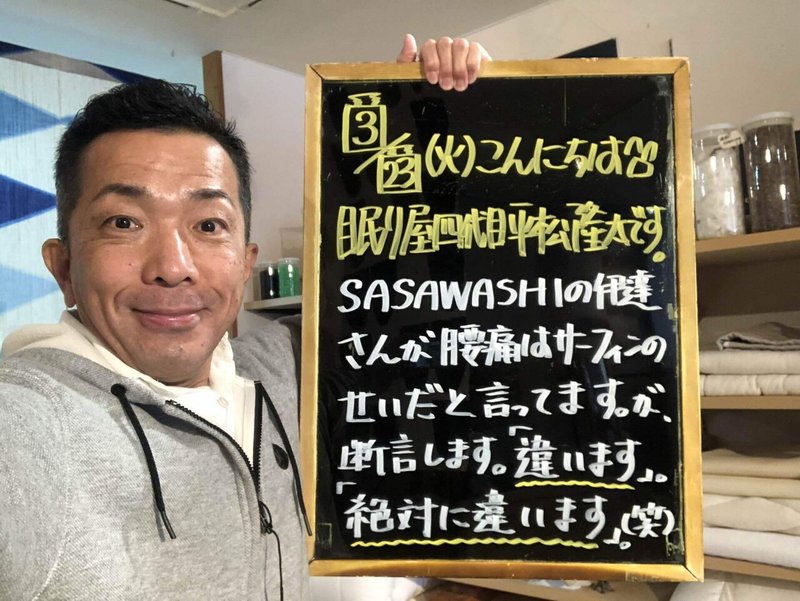 3/23(火)こんにちは
眠り屋四代目平松産太です。
SASAWASHIの伊達
さんが腰痛はサーフィンの
せいだと言ってます。が、
断言します。「違います」。
「絶対に違います」。(笑)